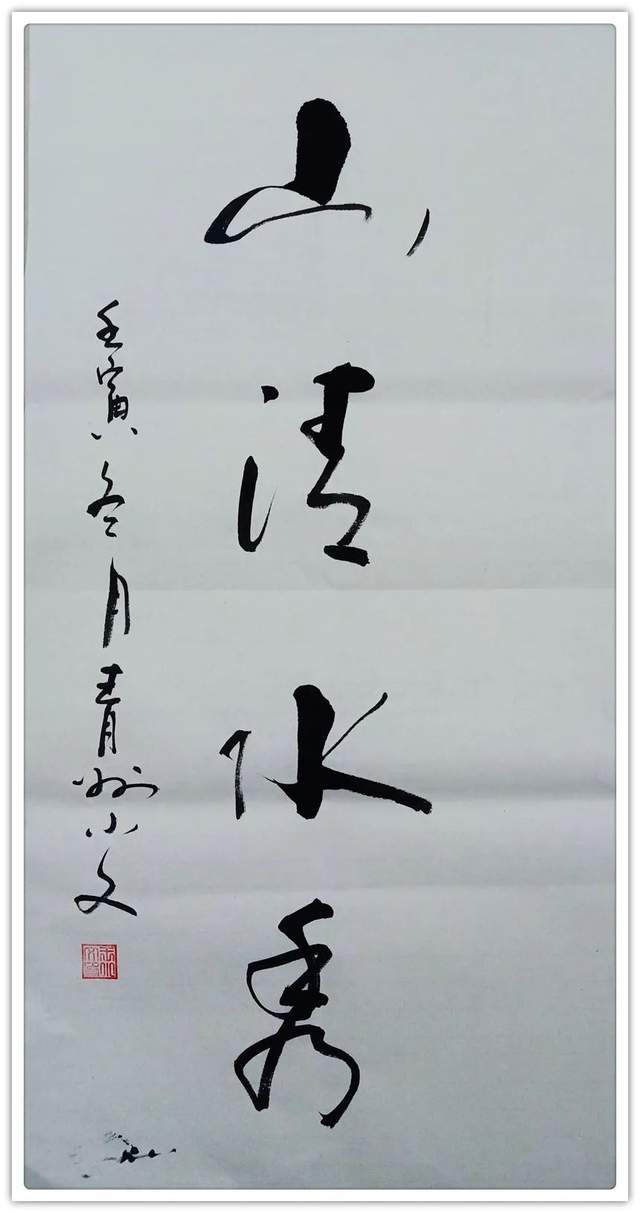 山清水秀
壬寅冬月青州小文